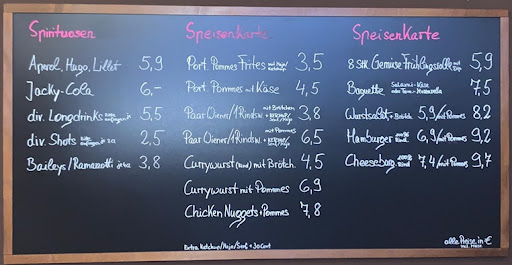 Spirituosen
Aperol, Hugo, Lillet 5,9
Jacky-Cola 6,-
div. Longdrinks 5,5
div. Shots 2,5
Baileys/Ramazotti je 4cl 3,8
Speisenkarte
Port. Pommes Frites mit Mayo/Ketchup 3,5
Port. Pommes mit Käse 4,5
Paar Wiener/1 Rindsw. mit Brötchen 3,8
Paar Wiener/1 Rindsw. mit Pommes 6,5
Currywurst (Rind) mit Brötch. 4,5
Currywurst mit Pommes 6,9
Chicken Nuggets + Pommes 7,8
Extra Ketchup/Mayo/Senf + 30 Cent
Speisenkarte
8 Stk. Gemüse Frühlingsrolle mit Dip 5,9
Baguette Salami-Käse oder Tom.-Mozzarella 7,5
Wurstsalat + Brötch. 5,9/mit Pommes 8,2
Hamburger 100% Rind 6,9/mit Pommes 9,2
Cheeseburg. 100% Rind 7,4/mit Pommes 9,7
alle Preise in €